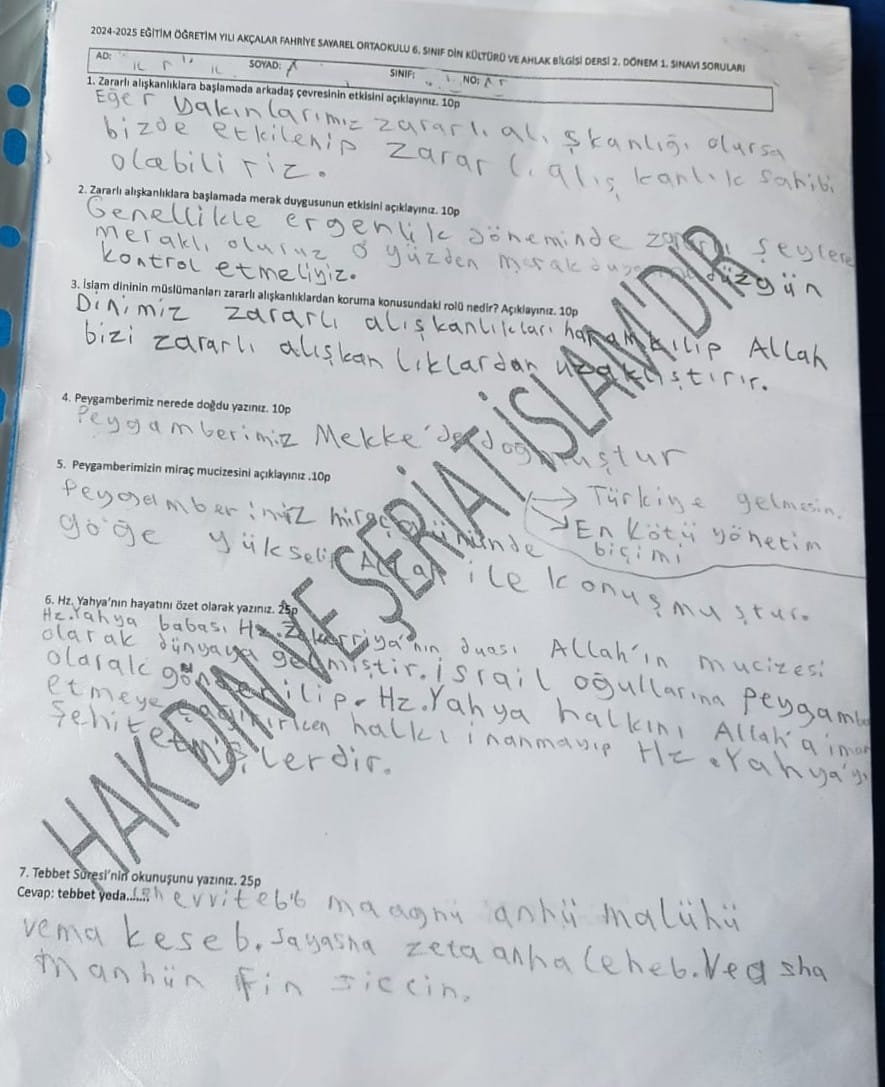 2024-2025 EĞİTİM ÖĞRETİM YILI AKÇALAR FAHRİYE SAYAREL ORTAOKULU 6. SINIF DİN KÜLTÜRÜ VE AHLAK BİLGİSİ DERSİ 2. DÖNEM 1. SINAVI SORULARI
AD: SOYAD: SINIF: NO:
1. Zararlı alışkanlıklara başlamada arkadaş çevresinin etkisini açıklayınız. 10p
Eğer yakınlarımız zararlı alışkanlığı olursa
bizde etkilenip zararlı alışkanlık sahibi
olabiliriz.
2. Zararlı alışkanlıklara başlamada merak duygusunun etkisini açıklayınız. 10p
Genellikle ergenlik döneminde zararlı şeylere
meraklı oluruz o yüzden merak düzgün
kontrol etmeliyiz.
3. İslam dininin müslümanları zararlı alışkanlıklardan koruma konusundaki rolü nedir? Açıklayınız. 10p
Dinimiz zararlı alışkanlıkları haram kılıp Allah
bizi zararlı alışkanlıklardan uzaklıştırır.
4. Peygamberimiz nerede doğdu yazınız. 10p
Peygamberimiz Mekke'de doğmuştur
5. Peygamberimizin miraç mucizesini açıklayınız .10p
Peygamberimiz miraç gününde
göğe yükselip Allah ile konuşmuştur.
→ Türkiye gelmesin.
→ En kötü yönetim
biçimi
6. Hz. Yahya'nın hayatını özet olarak yazınız. 25p
Hz. Yahya babası Hz. Zekerriya'nın duası Allah'ın mucizesi
olarak dünyaya gelmiştir. İsrail oğullarına peygamber
olarak gönderilip. Hz. Yahya halkını Allah'a iman
etmeye çağırırken halkı inanmayıp Hz. Yahya'yı
şehit etmişlerdir.
HAK DİN VE ŞERİAT İSLAM'DIR
7. Tebbet Suresi'nin okunuşunu yazınız. 25p
Cevap: tebbet yeda....... lehevvitebb maagnü anhü malühü
vema keseb. Sayasna zeta anha leheb. Ve
manhün fin siccin.